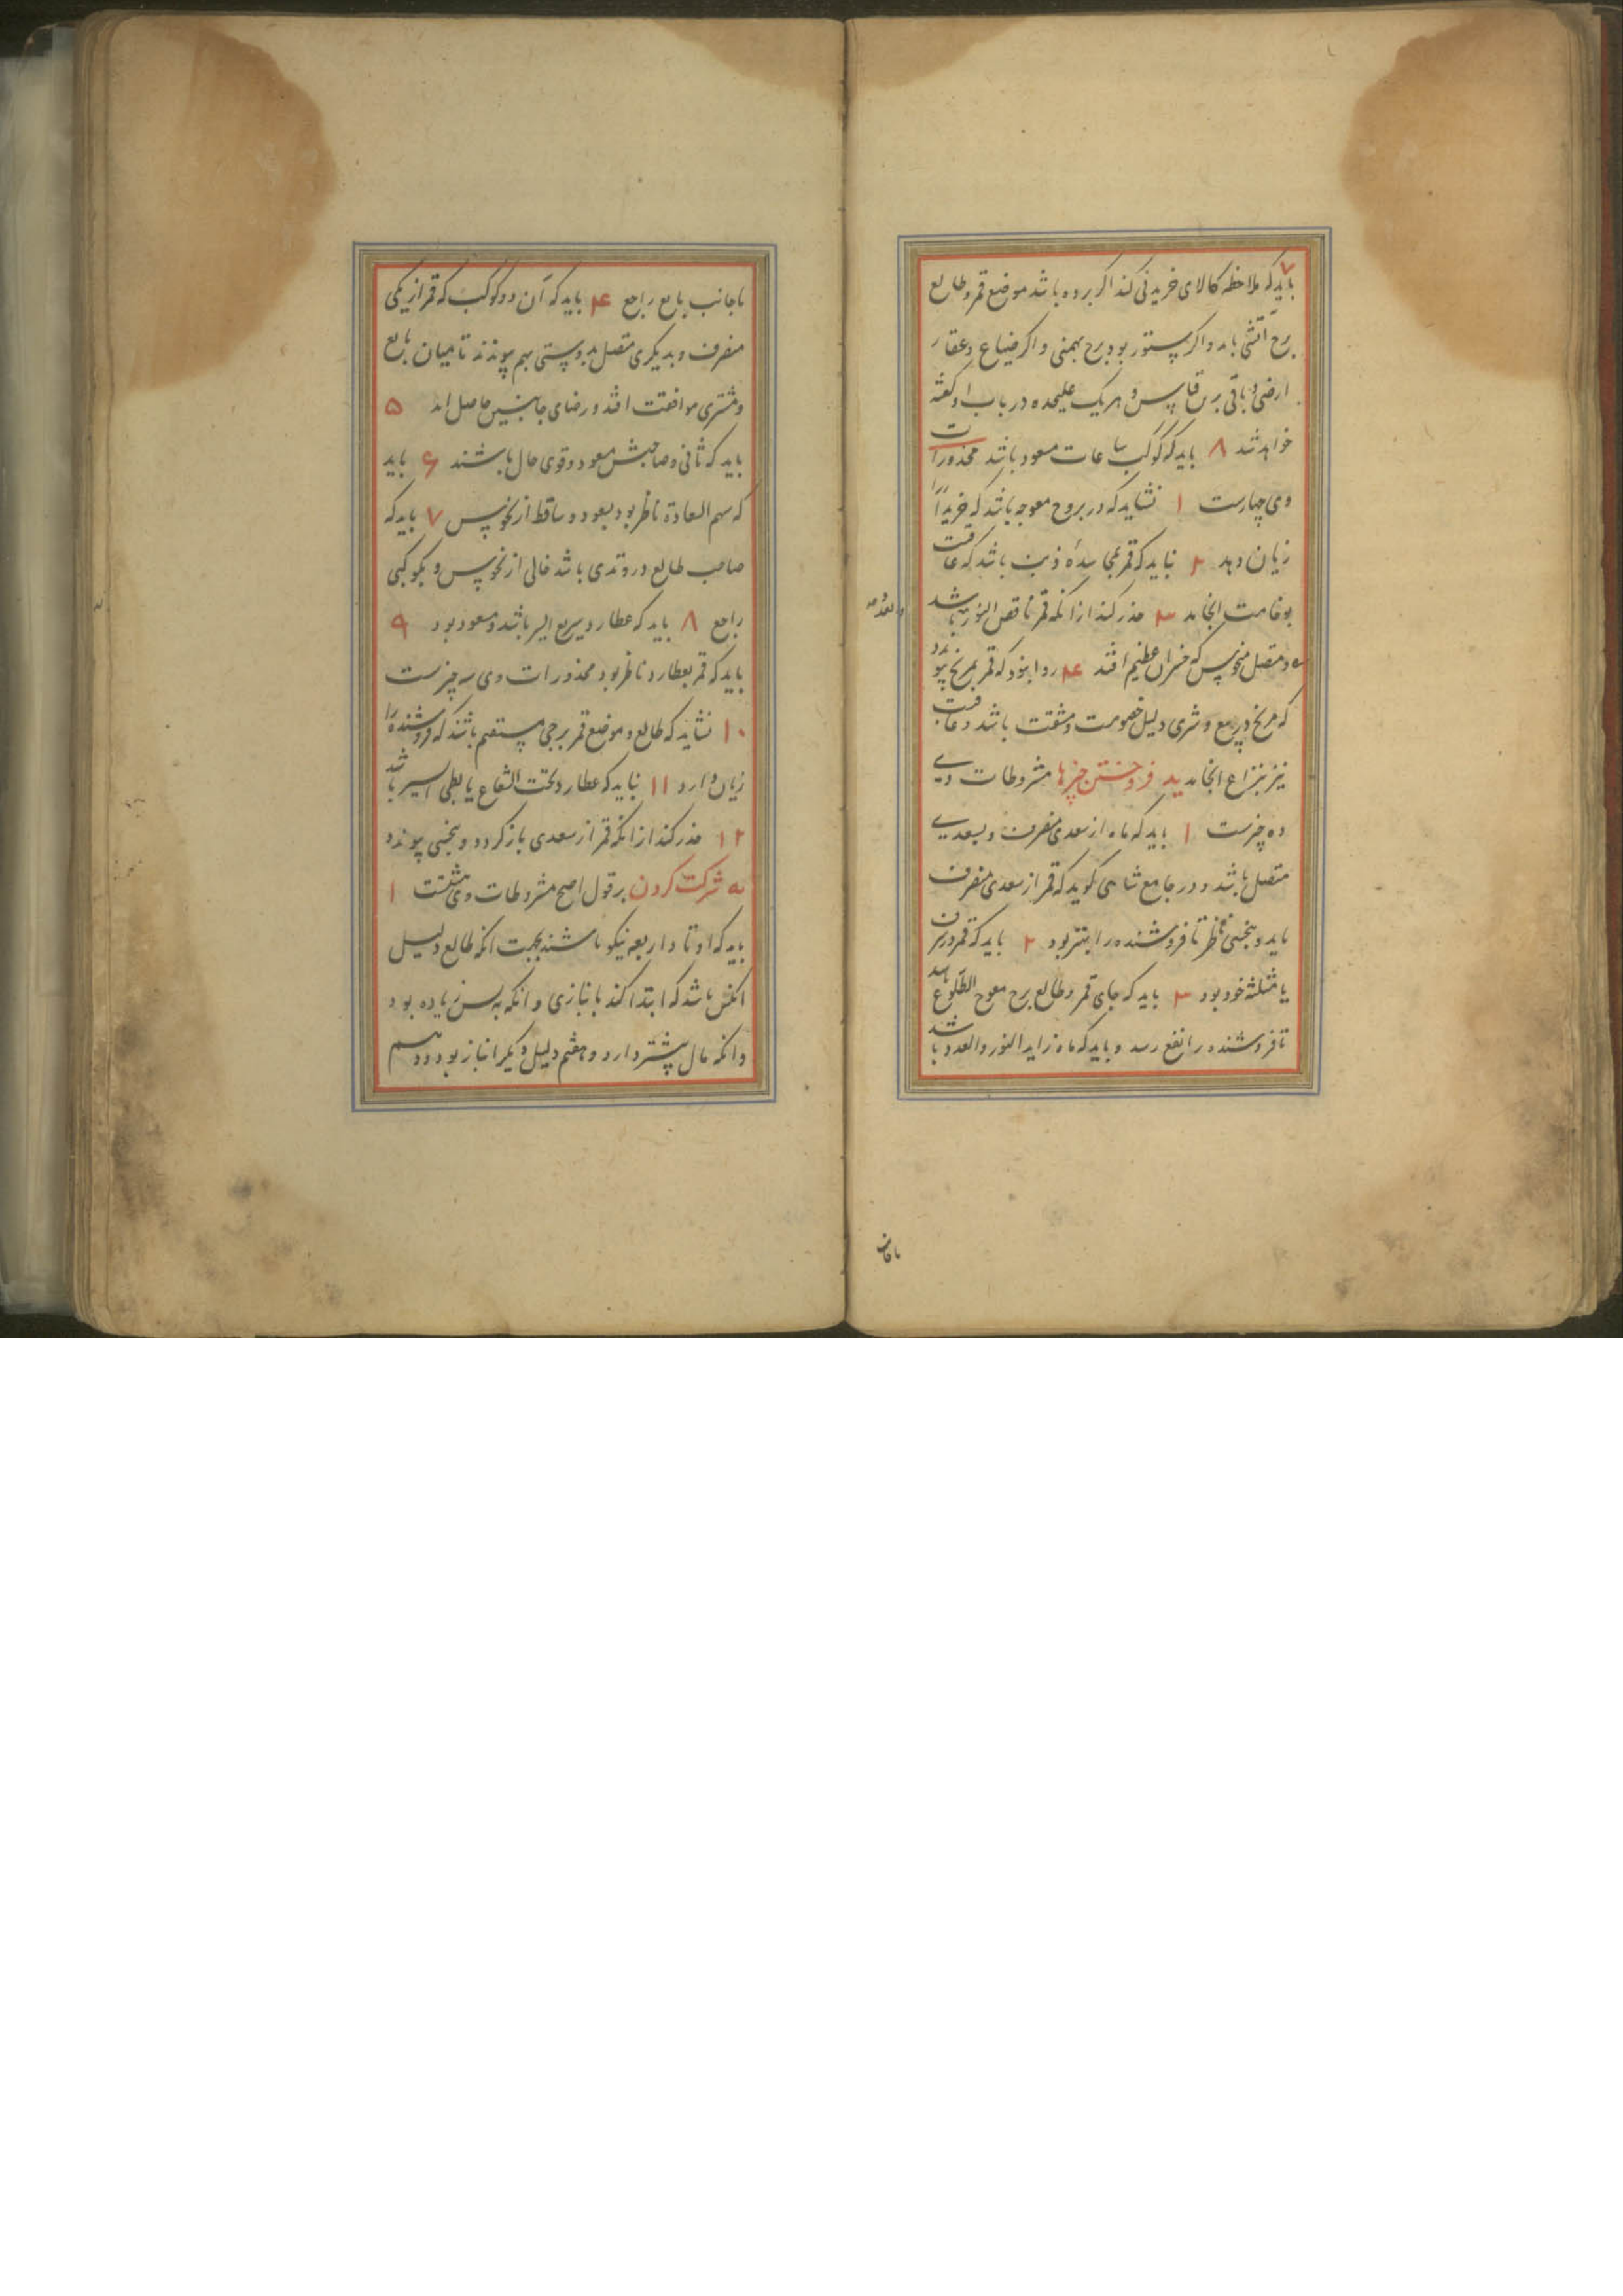 ۷ باید که ملاحظه کالای خریدنی کند اگر برده باشد موضع قمر و طالع
برج آتشی باید و اگر ستور بود برج بهیمی و اگر ضیاع و عقار
ارضی و باقی برین قیاس و هر یک علیحده در باب او گفته
خواهد شد ۸ باید که کوکب ساعات مسعود باشد محذورات
وی چهارست ۱ نشاید که در بروج معوجه باشد که خریدار را
زیان دهد ۲ نباید که قمر بمجاسده ذنب باشد که عاقبت
بوخامت انجامد ۳ حذر کند از آنکه قمر ناقص النور باشد
و متصل بنحوس که خسران عظیم افتد ۴ روا نبود که قمر بمریخ پیوندد
که مریخ در بیع و شری دلیل خصومت و مشقت باشد و عاقبت
نیز بنزاع انجامد ید فروختن چیزها مشروطات وی
ده چیزست ۱ باید که ماه از سعدی منصرف و بسعدی
متصل باشد و در جامع شاهی گوید که قمر از سعدی منصرف
باید و بنحسی ناظر تا فروشنده را بهتر بود ۲ باید که قمر در شرف
یا مثلثه خود بود ۳ باید که جای قمر و طالع برج معوج الطلوع باشد
تا فروشنده را نفع رسد و باید که ماه زاید النور و العدد باشد
تا جانب
تا جانب بایع راجع ۴ باید که آن دو کوکب که قمر از یکی
منصرف و بدیگری متصل بدوستی بهم پیوندند تا میان بایع
و مشتری موافقت افتد و رضای جانبین حاصل اید ۵
باید که ثانی و صاحبش مسعود و قوی حال باشند ۶ باید
که سهم السعادة ناظر بود بسعود و ساقط از نحوس ۷ باید که
صاحب طالع در وتدی باشد خالی از نحوس و بکوکبی
راجع ۸ باید که عطارد سریع السیر باشد و مسعود بود ۹
باید که قمر بعطارد ناظر بود محذورات وی سه چیزست
۱۰ نشاید که طالع و موضع قمر برجی مستقیم باشند که فروشنده را
زیان دارد ۱۱ نباید که عطارد تحت الشعاع یا بطی السیر باشد
۱۲ حذر کند از انکه قمر از سعدی باز گردد و بنحسی پیوندد
یه شرکت کردن بر قول اصح مشروطات وی هشتست ۱
باید که اوتاد اربعه نیکو باشند بجهت انکه طالع دلیل
انکس باشد که ابتدا کند بانبازی و انکه به سن زیاده بود
و انکه مال بیشتر دارد و هفتم دلیل دیگر انباز بود و دهم